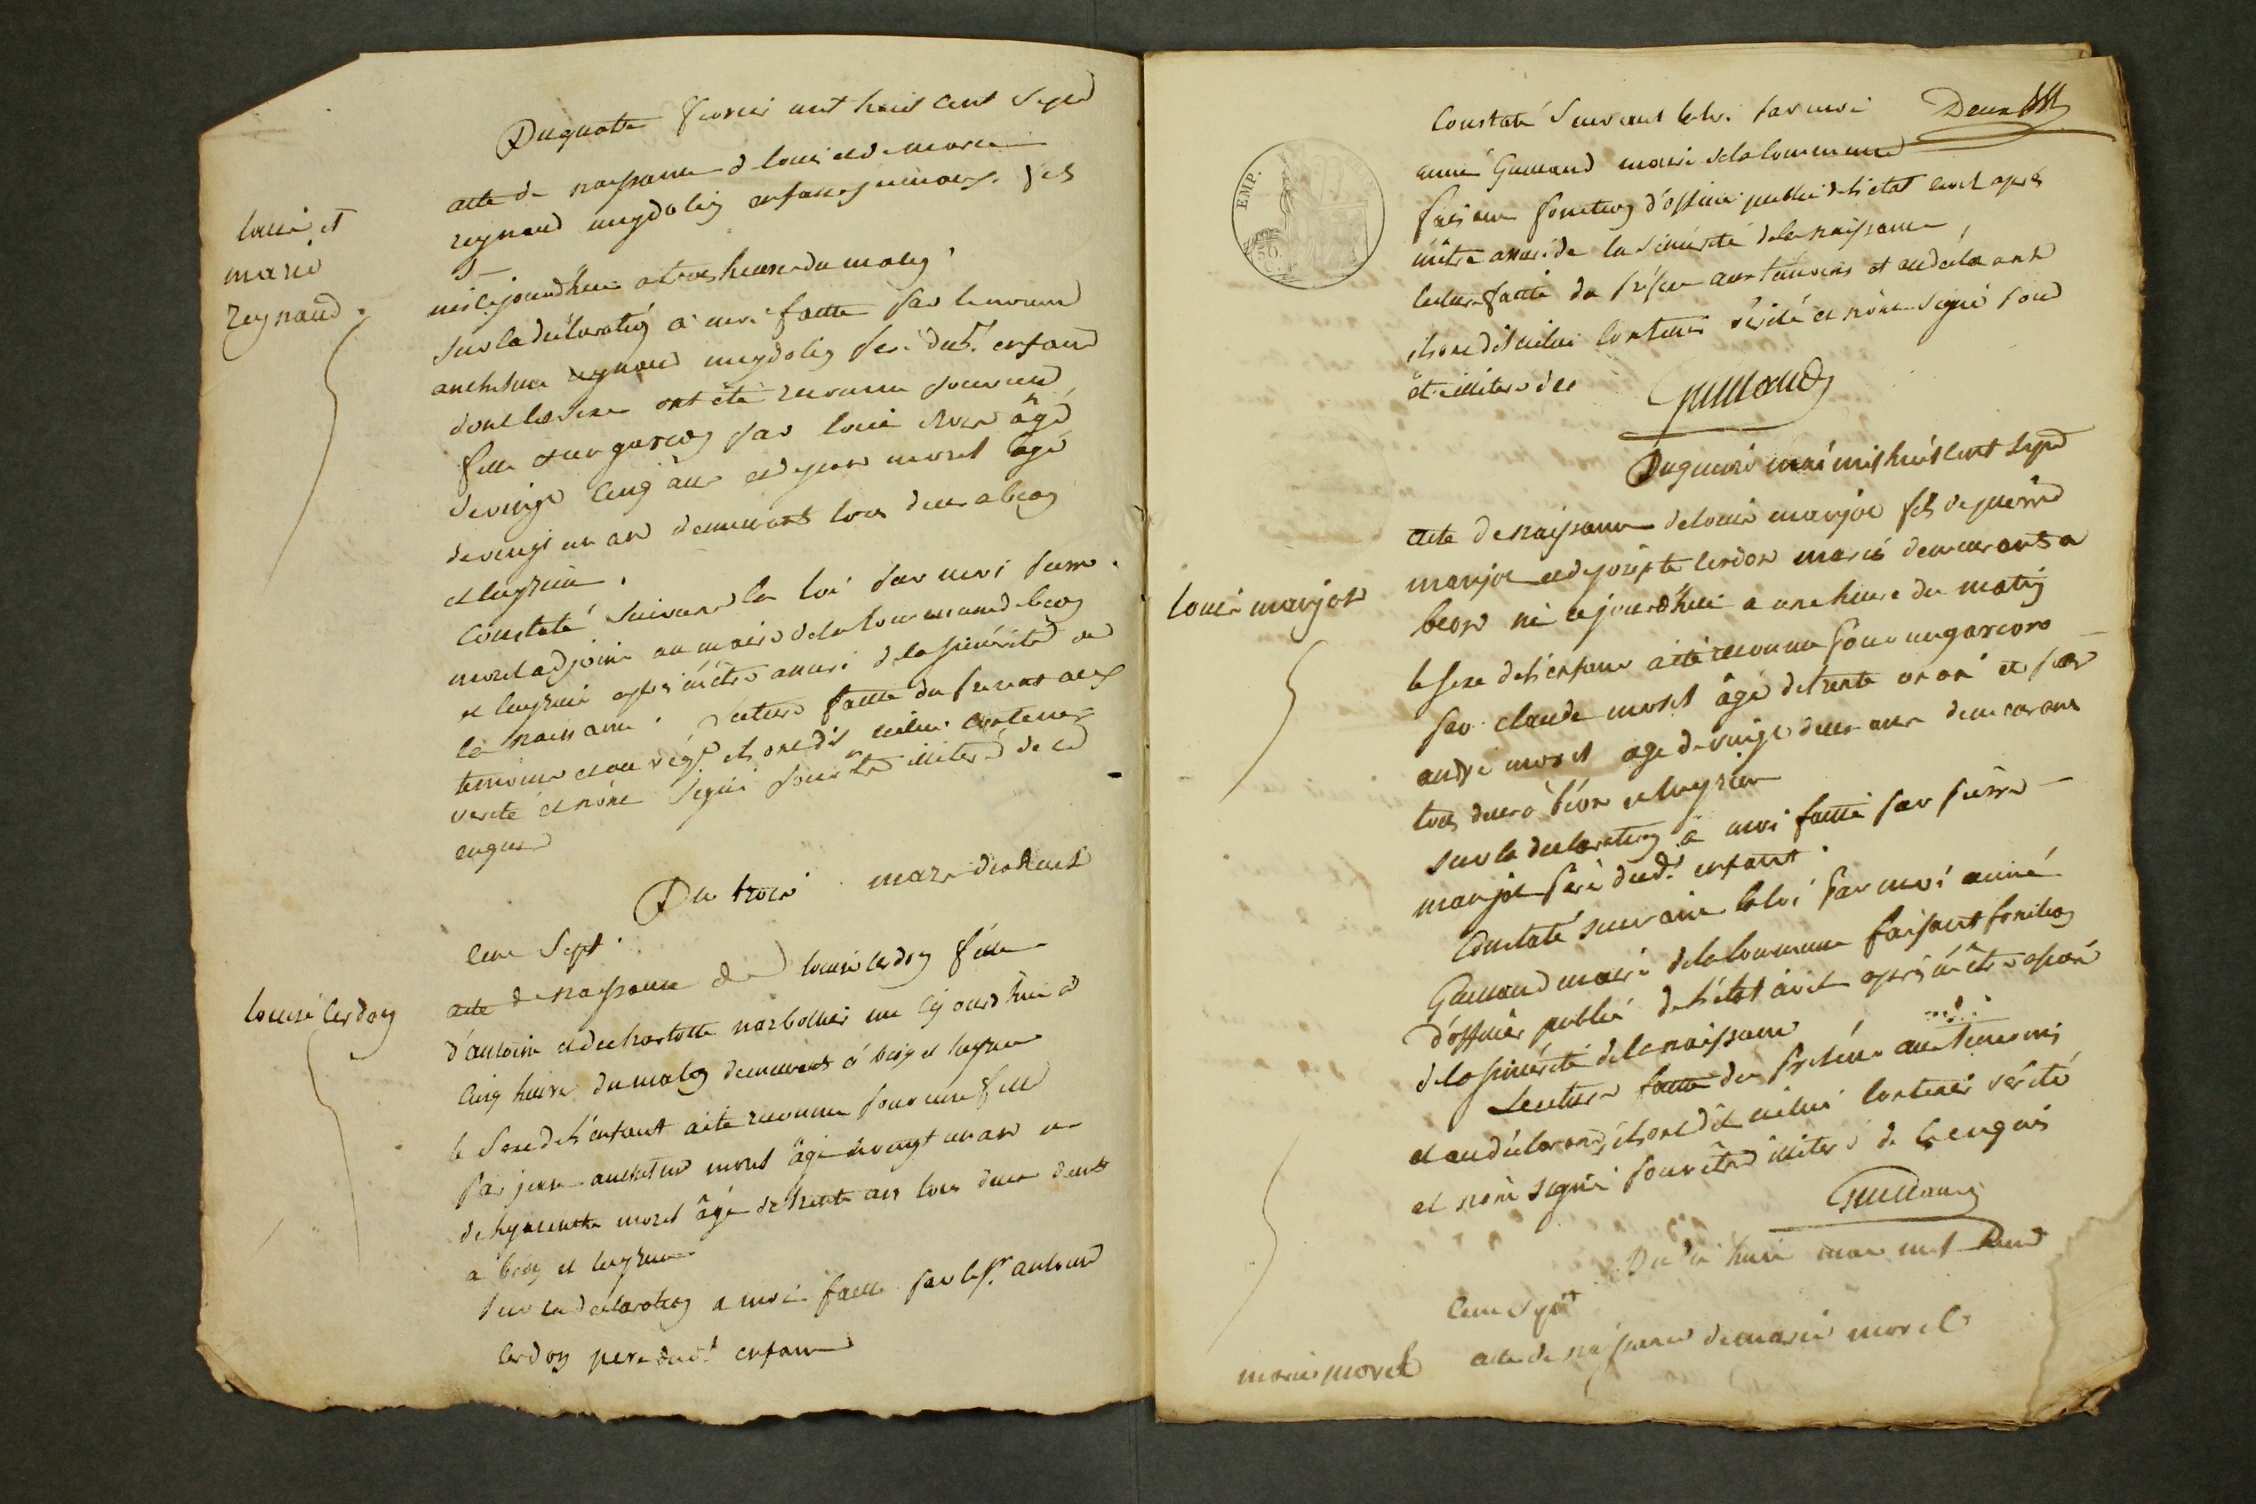 Du quatre fevrier mit huit cent sept
louis et
marie
reynaud.
acte de naissance d louis et de marie
reynaud meydolin enfans jumeaux
nés cejourdhui a trois heures du matin
sur la déclaration à moi faitte par le nommé
anthelme reynaud meydolin pere dud. enfand
dont le sexe ont été reconnu pour une
fille et un garcon par louis âgé
de vingt cinq ans et de jean morel âgé
de vingt un an demeurants tous deux a beon
et luyrieu.
Constaté suivant la loi par moi pierre
morel adjoint au maire de la commune de beon
et luyrieu après m'être assuré de la sincérité de
la naissance. Lecture faitte du present aux
temoins et au réqt ils ont dit icelui contenir
verité et n'ont signé pour être illiteré de ce
enquis
Du trois mars dix huit
cent sept.
louise cerdon
acte de naissance de louise cerdon fille
d'antoine et de charlotte narbollier née cejourdhui a
cinq heures du matin demeurants à beon et luyrieu
le sexe de l'enfant a été reconnu pour une fille
par jean anthelme morel âgé de vingt un an et
de hyacinthe morel âgé de trente ans tous deux demts
a beon et luyrieu
sur la déclaration a moi faitte par le sr. antoine
cerdon pere dud. enfand
EMP.
50.
Constaté suivant la loi par moi
aimé Guinand maire de la commune
faisant fonction d'officier public de l'état civil après
m'être assuré de la sincérité de la naissance,
lecture faitte du présent aux temoins et au déclarant
ils ont dit icelui contenir vérité et n'ont signé pour
être illiteré de ce
Guinand
Du quinze mai mit huit cent sept
louis marjot
acte de naissance de louis marjot fils de pierre
marjot et de josepte cerdon mariés demeurants a
beon né cejourd'hui a une heure du matin
le sexe de l'enfant a été reconnu pour un garcon
par claude morel âgé de trente un an et par
andré morel agé de vingt deux ans demeurants
tous deux à béon et luyrieu
sur la déclaration à moi faitte par pierre
marjot père dud. enfant.
Constaté suivant la loi par moi aimé
Guinand maire de la commune faisant fonction
d'officier public de l'état civil après m'être assuré
de la sincérité de la naissance
Lecture faitte du présent aux temoins
et au déclarant, ils ont dit icelui contenir vérité
et n'ont signé pour être illiteré de ce enquis
Guinand
Du dix huit mai mit huit
cent sept
marie morel
acte de naissance de marie morel